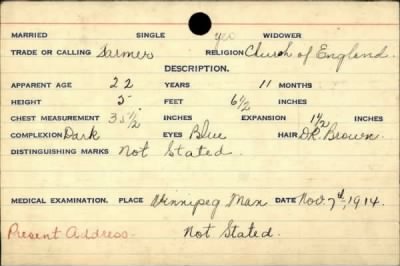 MARRIED SINGLE yes WIDOWER
TRADE OR CALLING Farmer RELIGION Church of England.
DESCRIPTION.
APPARENT AGE 22 YEARS 11 MONTHS
HEIGHT 5 FEET 6 1/2 INCHES
CHEST MEASUREMENT 35 1/2 INCHES EXPANSION 1 1/2 INCHES
COMPLEXION Dark EYES Blue HAIR DK. Brown.
DISTINGUISHING MARKS Not Stated.
MEDICAL EXAMINATION. PLACE Winnipeg Man DATE Nov. 7th, 1914.
Present Address. Not Stated.